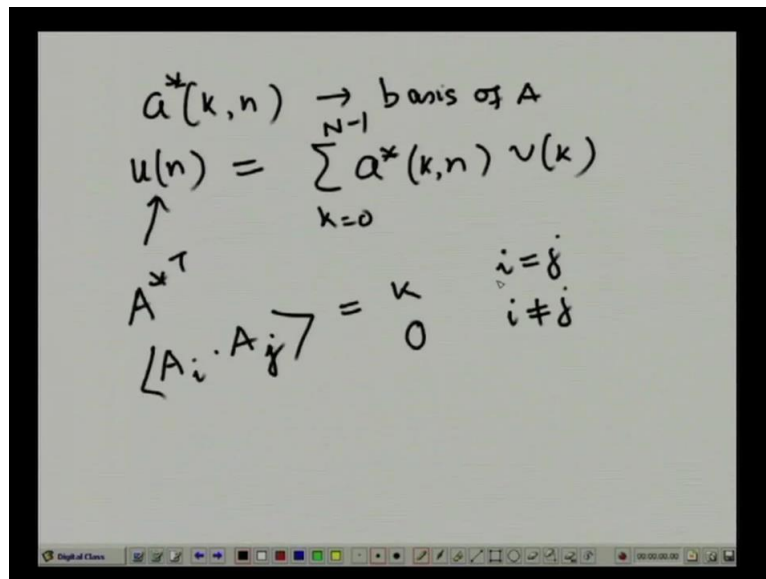 a*(k,n) → basis of A
u(n) = N-1 ∑ k=0 a*(k,n) v(k)
↑
A*T
⟨A_i · A_j⟩ = k i = j
0 i ≠ j
Digital Class 00:00:00.00